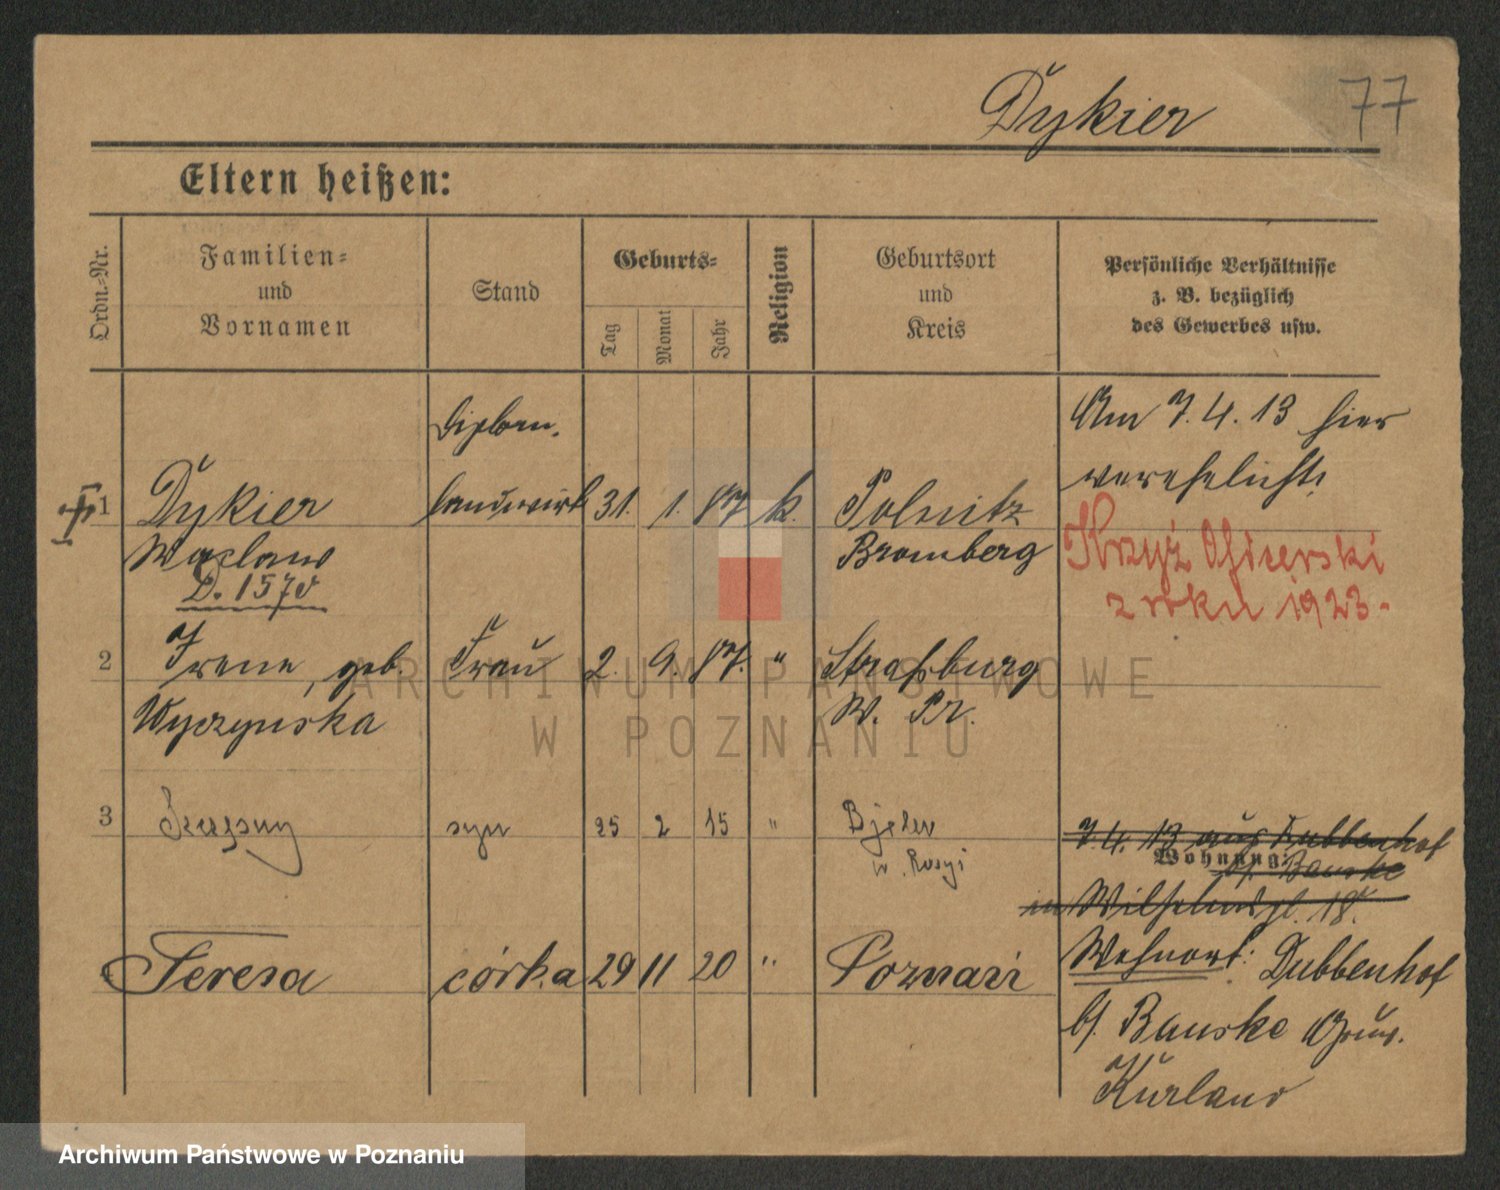 Dykier
77
Eltern heißen:
Ordn.-Nr.
Familien-
und
Vornamen
Stand
Geburts-
Tag
Monat
Jahr
Religion
Geburtsort
und
Kreis
Persönliche Verhältnisse
z. B. bezüglich
des Gewerbes usw.
Diplom.
Am 7. 4. 13 hier
verehelicht.
1 Dykier landwirt 31. 1. 87 k. Polnitz
Waclaw Bromberg
D. 157
Krzyż Oficerski
z roku 1923.
2 Irene, geb. Frau 2. 9. 87. " Straßburg
Wyczynska W. Pr.
3 syn 25 2 15 "
w. Rosyi
7. 4. 13 aus Dubbenhof
Wohnung:
bf. Bauske
in Wilhelmspl. 18.
4 Teresa córka 29 11 20 " Poznań
Wohnort: Dubbenhof
b/. Bauske Gouv.
Kurland
ARCHIWUM PAŃSTWOWE
W POZNANIU
Archiwum Państwowe w Poznaniu